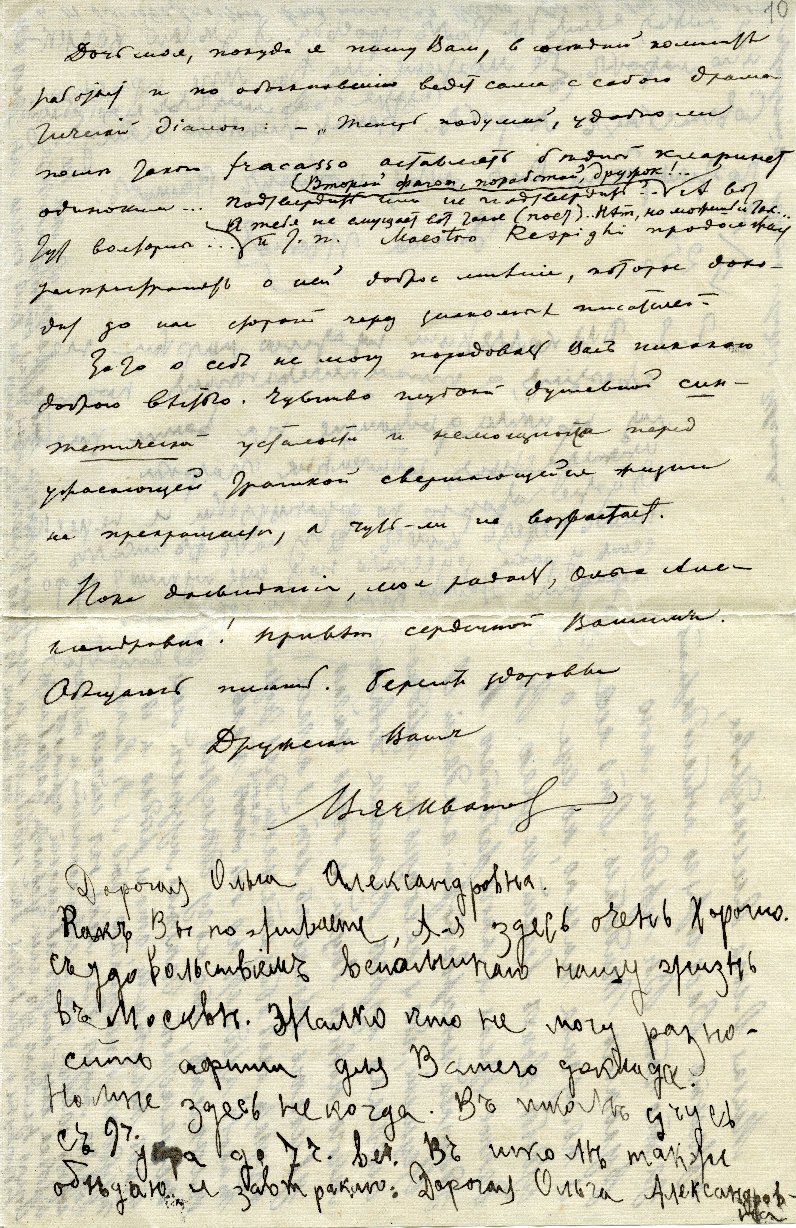 10
Дочь моя, покуда я пишу Вам, в соседней комнате
работает и по обыкновению ведет сама с собою драма-
тическій діалог: – „Теперь подумай, удобно ли
после такого fracasso оставлять бедный кларнет
(Второй фагот, поработай, дружок!..
одиноким... подтвердить или не подтвердить?.. А вот
А тебя не смущает вот такое (поет)..Нѣт, но можно и так...
тут валторны..." и т. п. Maestro Respighi продолжает
распространять о ней доброе мнѣніе, которое дохо-
дит до нас стороной через знакомых писателей.
Зато о себѣ не могу порадовать Вас никакою
доброю вѣстью. Чувство глубокой душевной син-
тетической усталости и немощности перед
ужасающей трагикой свершающейся жизни
не прекращается, а чуть-ли не возрастает.
Пока до свиданія, моя радость, Ольга Алек-
сандровна! Привѣт сердечный Вашим.
Обѣщаюсь писать. Берегите здоровье
Дружески Ваш
Вяч Иванов
Дорогая Ольга Александровна.
Какъ Вы поживаете, я здесь очень хорошо.
съ удовольствіемъ вспоминаю нашу жизнь
въ Москвѣ. Жалко что не могу разно-
сить афиши для Вашего доклада.
Но мне здесь некогда. Въ школѣ учусь
съ 9 ч. утра до 7 ч. веч. Въ школѣ также
обѣдаю и завтракаю. Дорогая Ольга Александров-
на